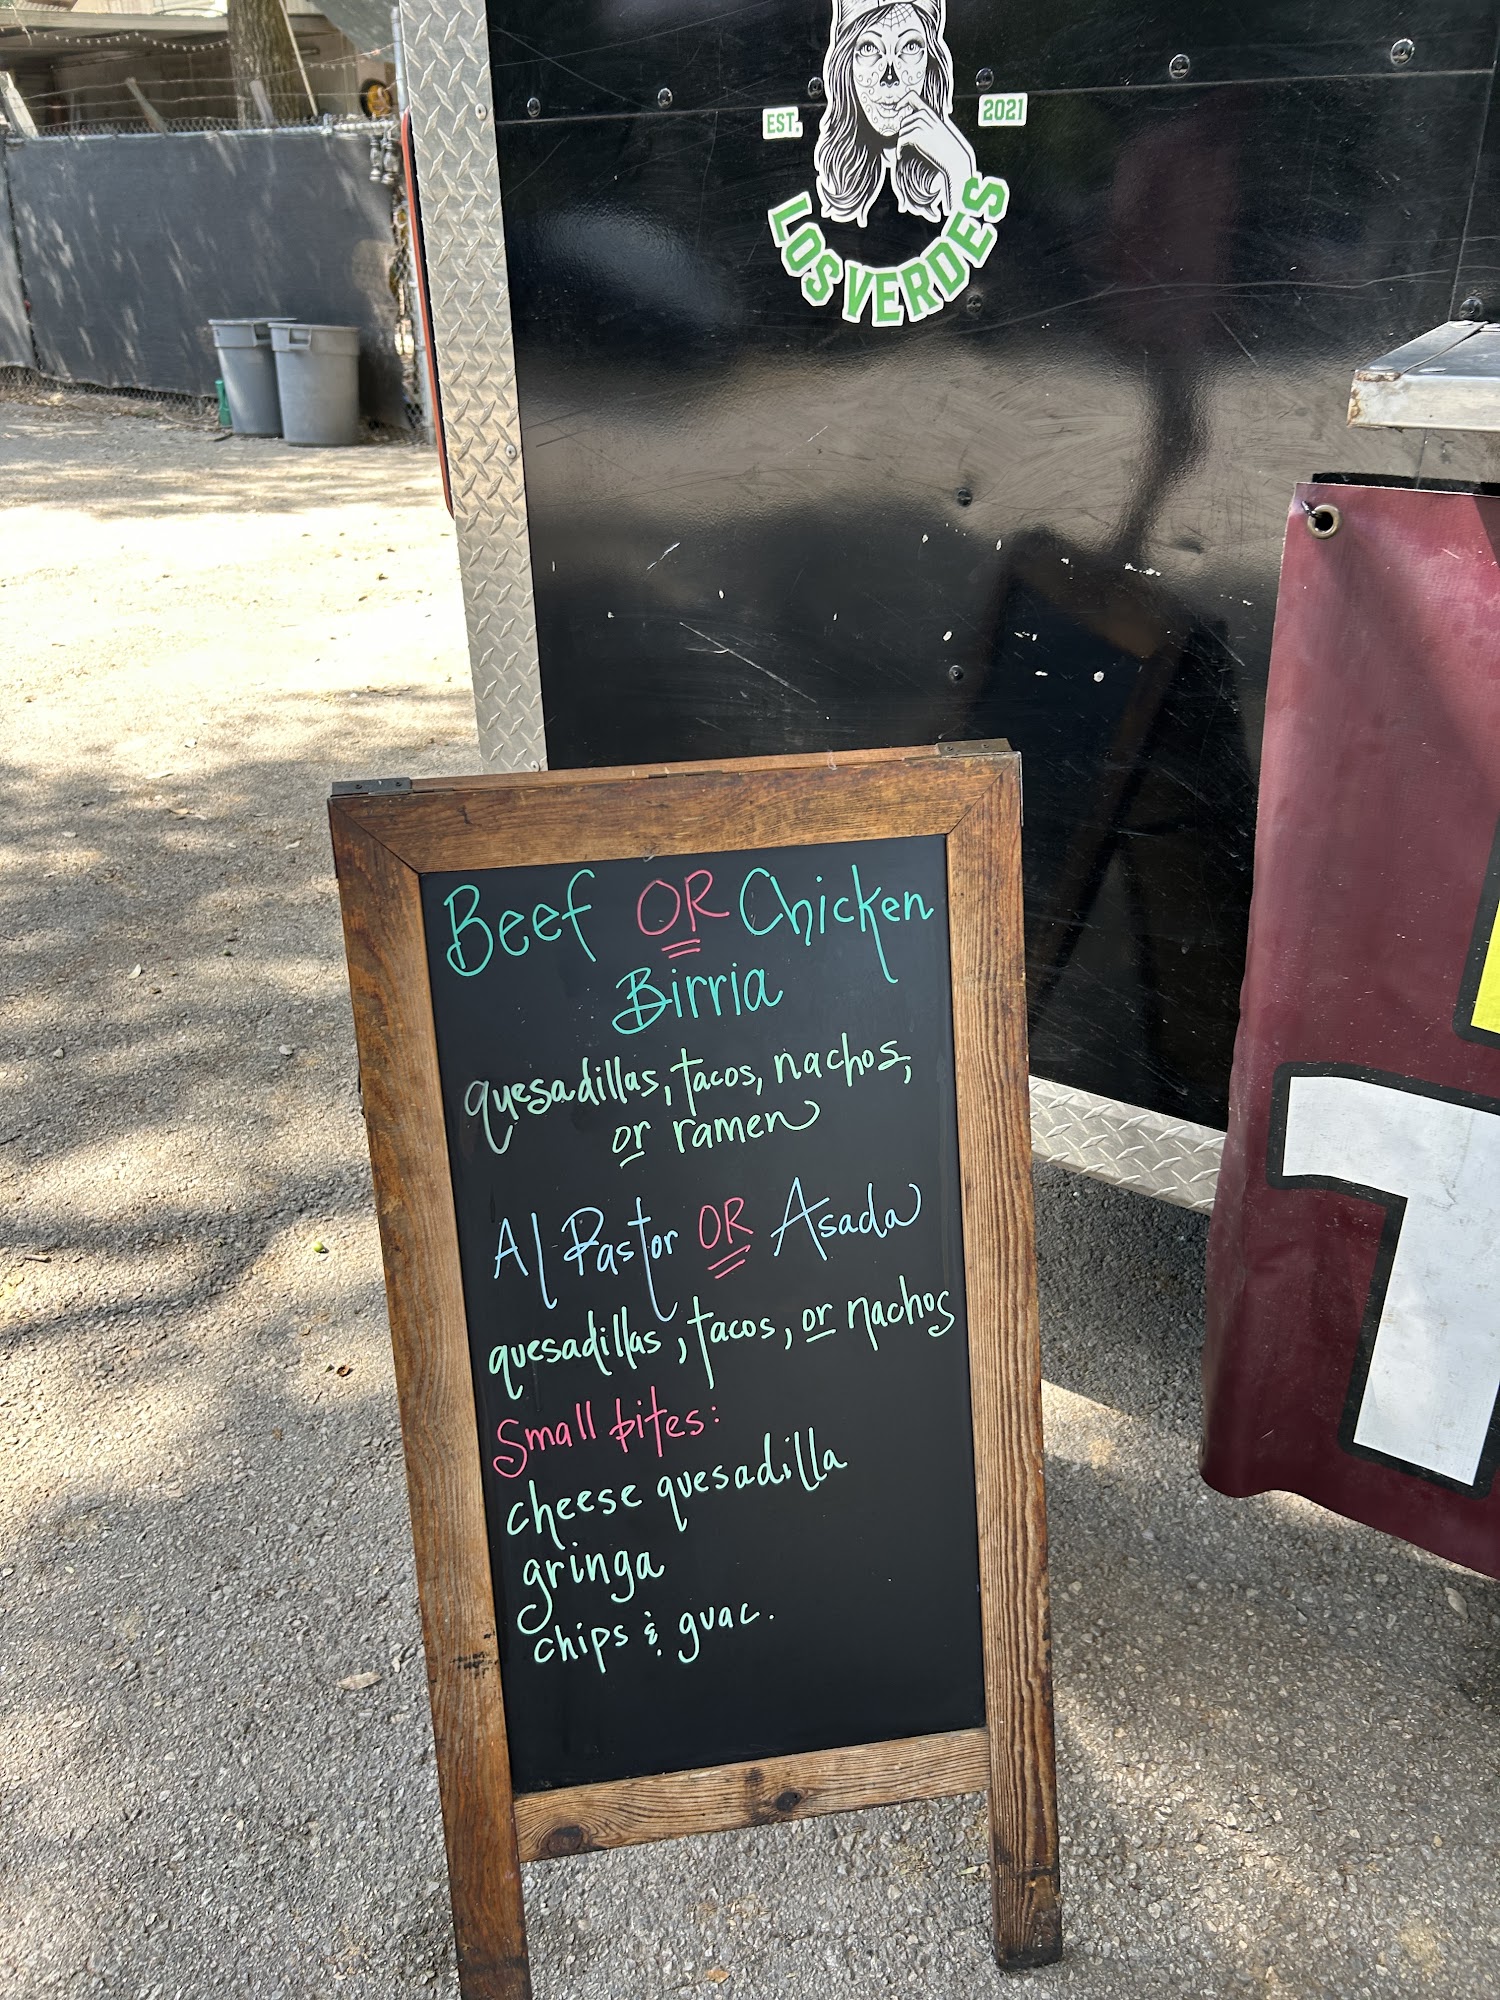 EST. 2021
LOS VERDES
Beef OR Chicken
Birria
quesadillas, tacos, nachos,
or ramen
Al Pastor OR Asada
quesadillas, tacos, or nachos
Small bites:
cheese quesadilla
gringa
chips & guac.
T